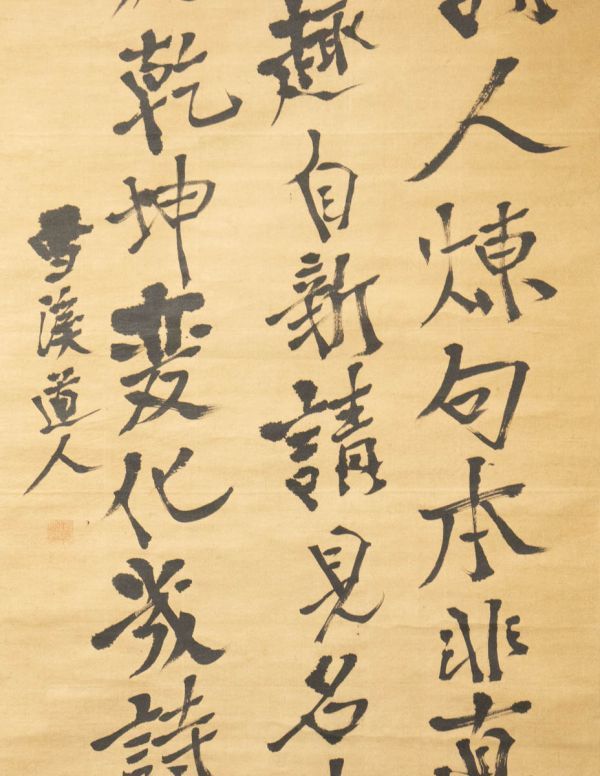 人煉句本非
趣自新請見名
乾坤変化幾詩
雪溪道人